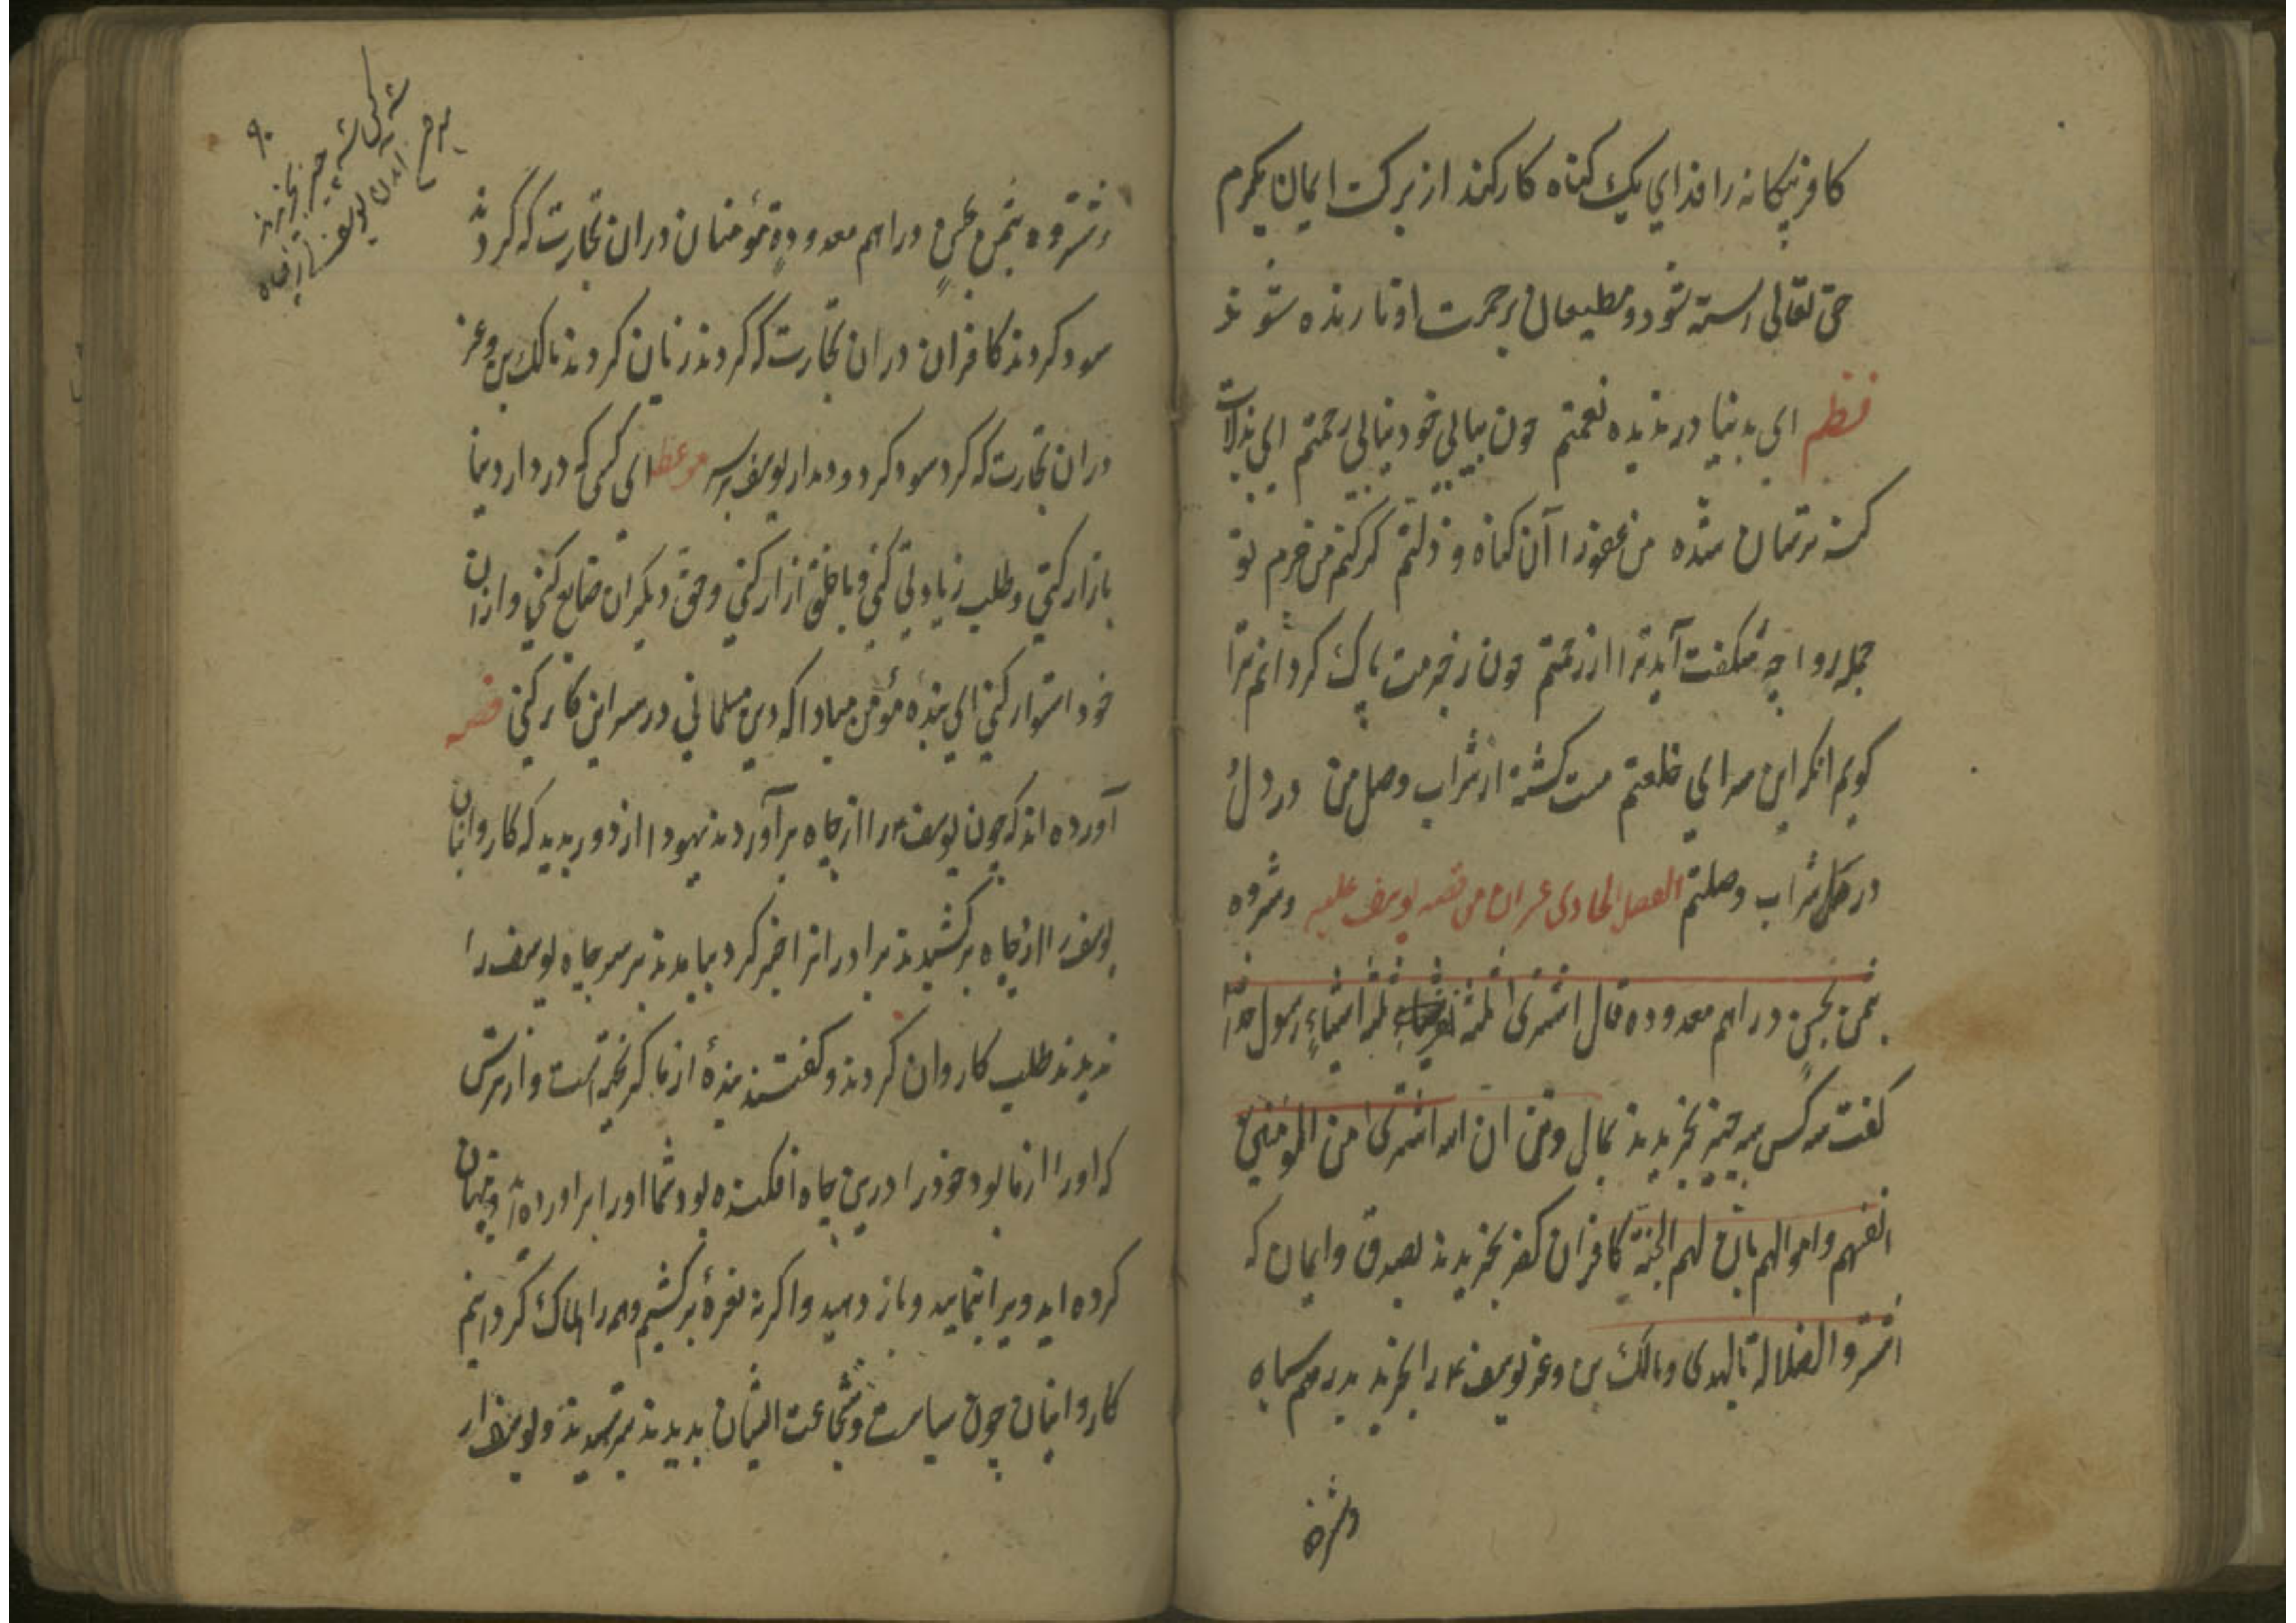 کافر بیکانه را فدای یک کناه کار کند از برکت ایمان یکرم
حق تعالی رسته شود و مطیعان برحمت او نازنده شوند
نظم ای بدنیا در ندیده نعمتم چون بیایی خود بیابی رحمتم ای بذلات
کنه ترسان شده من غفورم آن کناه و ذلتم کر کنم من خرم تو
جمله روا چه شکفت آید ترا از رحمتم چون زخرمت پاک کردانم ترا
کویم انکر این سرای خلعتم مست کشته از شراب وصل من در دل
در کل شراب وصلتم الفصل الحادی عشران من قصه یوسف علیه وشروه
بثمن بخس دراهم معدوده قال اشتری ثلثه ثلثه اشیاء رسول خدا
کفت سه کس سه چیز بخریدند بمال وتن ان الله اشتری من المؤمنین
انفسهم واموالهم بان لهم الجنة کافران کفر بخریدند بصدق وایمان که
اشتروا الضلالة بالهدی ومالک بن وعر یوسف را بخرید بدرهم سیاه
وشروه
۹۰
سه کس سه چیز بخریدند
برآمدن یوسف از چاه
وشروه بثمن بخسٍ دراهم معدودة مؤمنان دران تجارت که کردند
سود کردند کافران دران تجارت که کردند زیان کردند مالک بن وعر
دران تجارت که کرد سود کرد و دیدار یوسف موعظه ای کسی که در دار دنیا
بازار کنی وطلب زیادتی کنی وبا خلق ازار کنی وحق دیکران ضایع کنی وازان
خود استوار کنی ای بنده مؤمن مبادا که دین مسلمانی در سر این کار کنی قصه
آورده اند که چون یوسف را از چاه برآوردند یهودا از دور بدید که کاروانیان
یوسف را از چاه برکشیدند برادرانرا خبر کرد بیامدند بر سر چاه یوسف را
ندیدند طلب کاروان کردند وکفتند بندهٔ از ما کریخته است واز ترس
که اورا از ما بود خود را درین چاه افکنده بود شما اورا براورده اید وپنهان
کرده اید ویرا بنمایید وباز دهید واکر نه نعرهٔ برکشیم وهمه را هلاک کردانیم
کاروانیان چون سیاست وشجاعت ایشان بدیدند بترسیدند ویوسف را